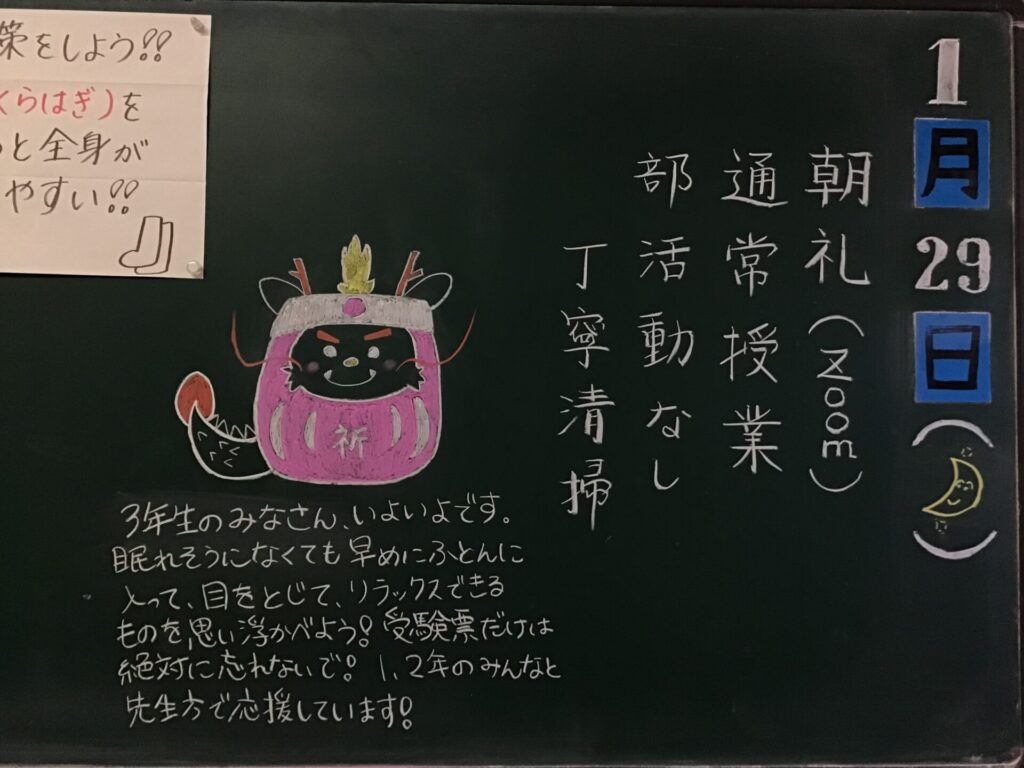 策をしよう!!
くらはぎ)を
と全身が
やすい!!
1月29日( )
朝礼(Zoom)
通常授業
部活動なし
丁寧清掃
祈
3年生のみなさん、いよいよです。
眠れそうになくても早めにふとんに
入って、目をとじて、リラックスできる
ものを思い浮かべよう!受験票だけは
絶対に忘れないで!1、2年のみんなと
先生方で応援しています!